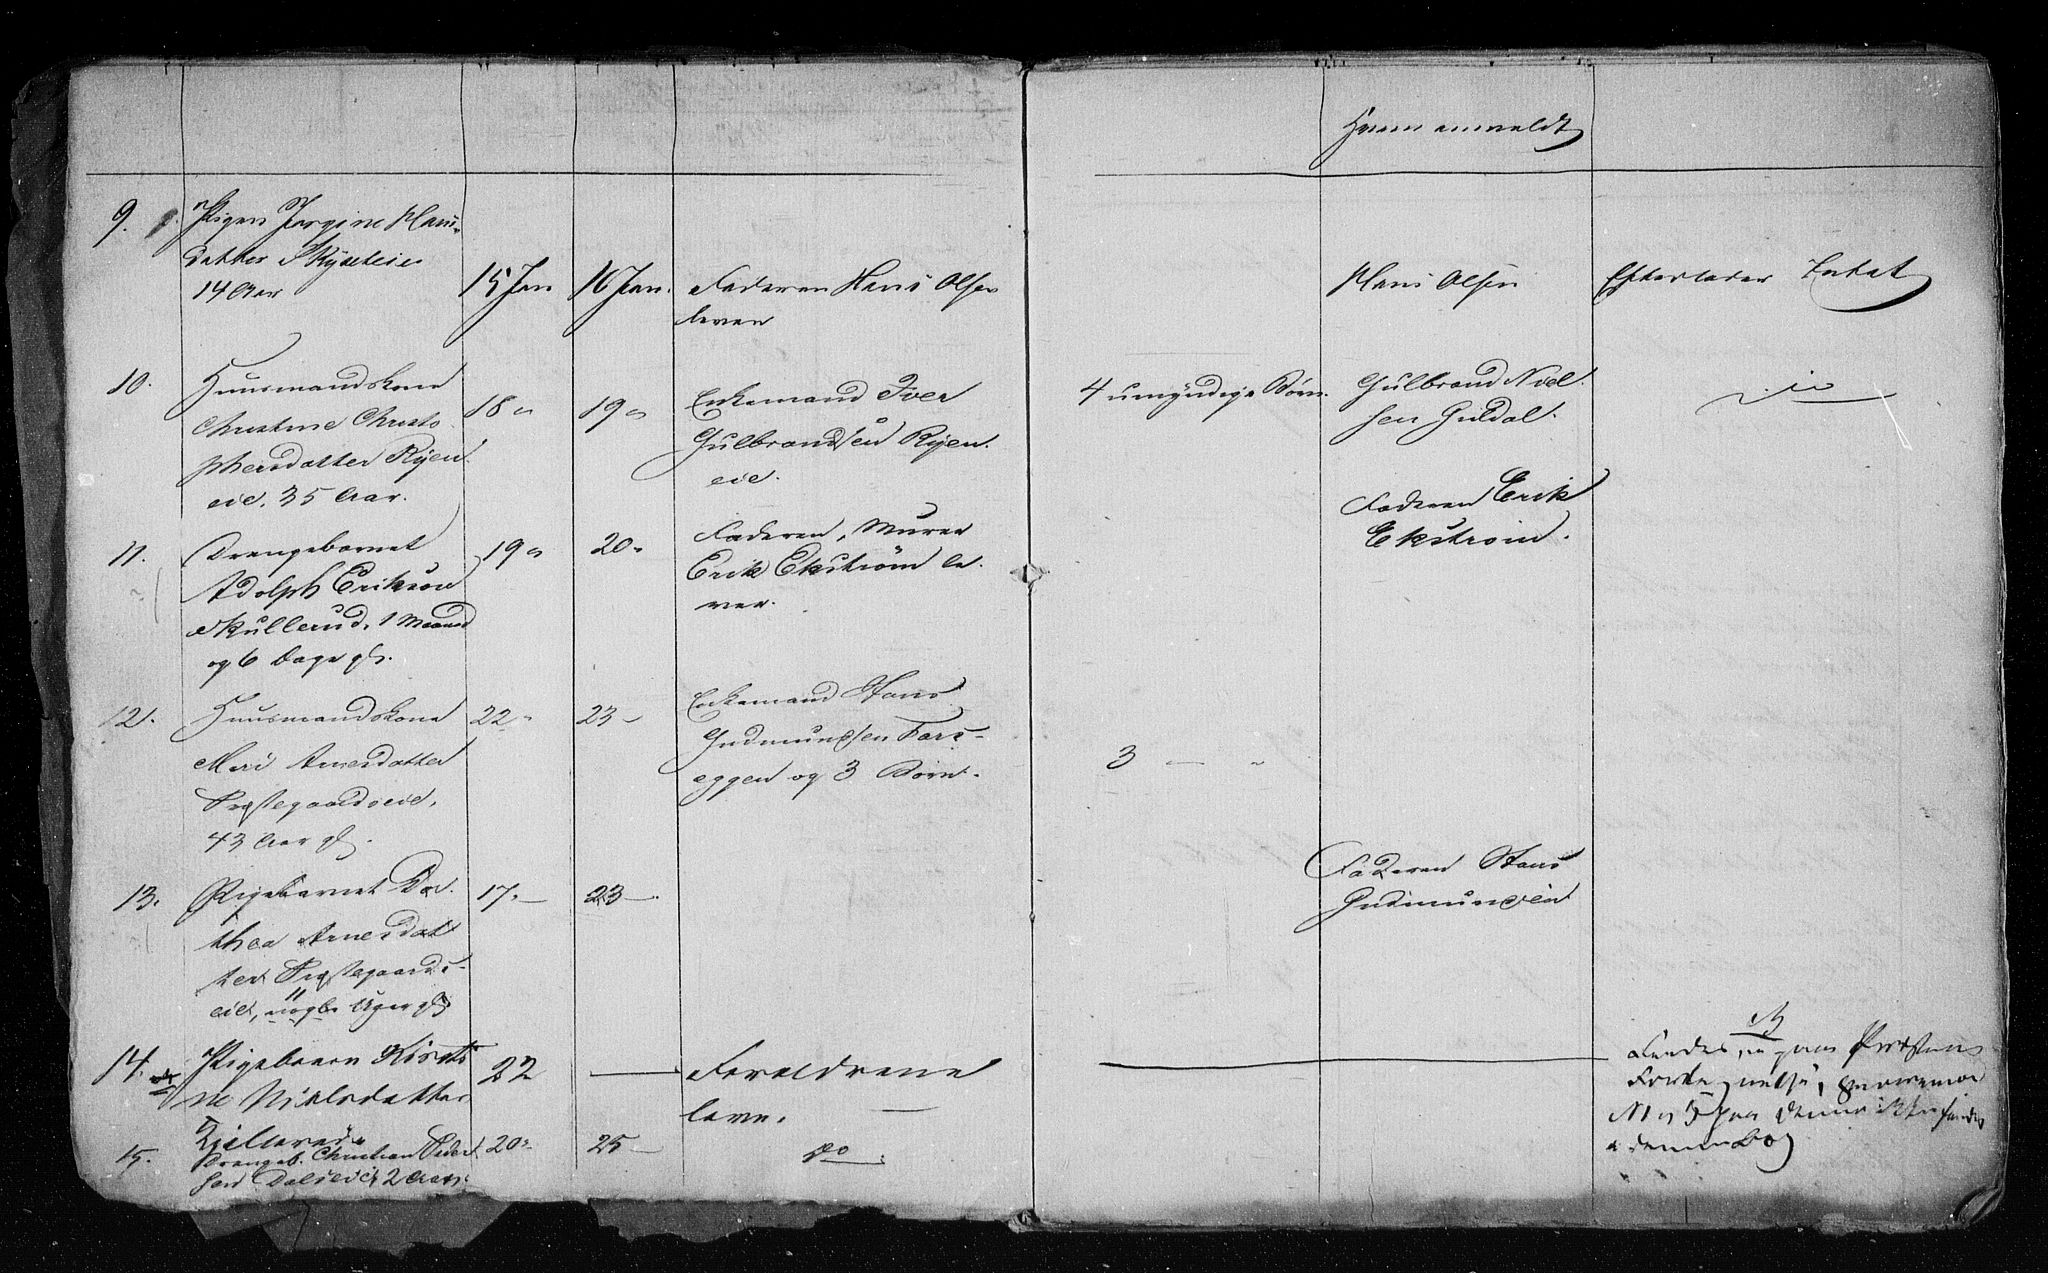 Hvem anmeldt
9. Pigen Jørgine Hans-
datter Skyseteie
14 Aar
15 Jan
16 Jan.
Faderen Hans Olsen
lever
Hans Olsen
Efterlader Intet
10. Huusmandskone
Christine Christo-
phersdatter Ryen-
eie. 35 Aar.
18 "
19 "
Enkemand Iver
Gulbrandsen Ryen-
eie.
4 umyndige Børn.
Gulbrand Niel-
sen Guldal.
11. Drengebarnet
Adolph Eriksøn
Skullerud, 1 Maaned
og 6 Dage gl.
19 "
20 "
Faderen, Murer
Erik Ekstrøm le-
ver.
Faderen Erik
Ekstrøm.
12. Huusmandskone
Mari Arnesdatter
Præstegaardseie,
43 Aar gl.
22 "
23 –
Enkemand Hans
Gudmundsen Fors-
eggen og 3 Børn.
3 — "
13. Pigebarnet Do-
thea Arnesdat
ter Præstegaards-
eie, 11 nogle Uger gl
17 " –
23 –
Faderen Hans
Gudmundsen
14. Pigebarn Kirsti
ne Nielsdatter
22
—
Forældrene
leve.
Findes, paa Præstens
Fortegnelse,
No 5 paa findes
i denne Bog
15. Drengeb. Christian Peder
sen Dalseie 2 Aar.
20 "
25 –
do